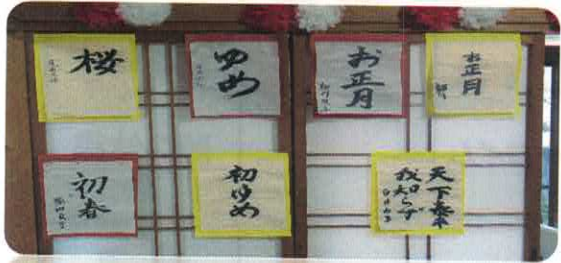 桜
ゆめ
お正月
お正月
初春
初ゆめ
天下泰平
我口知らず